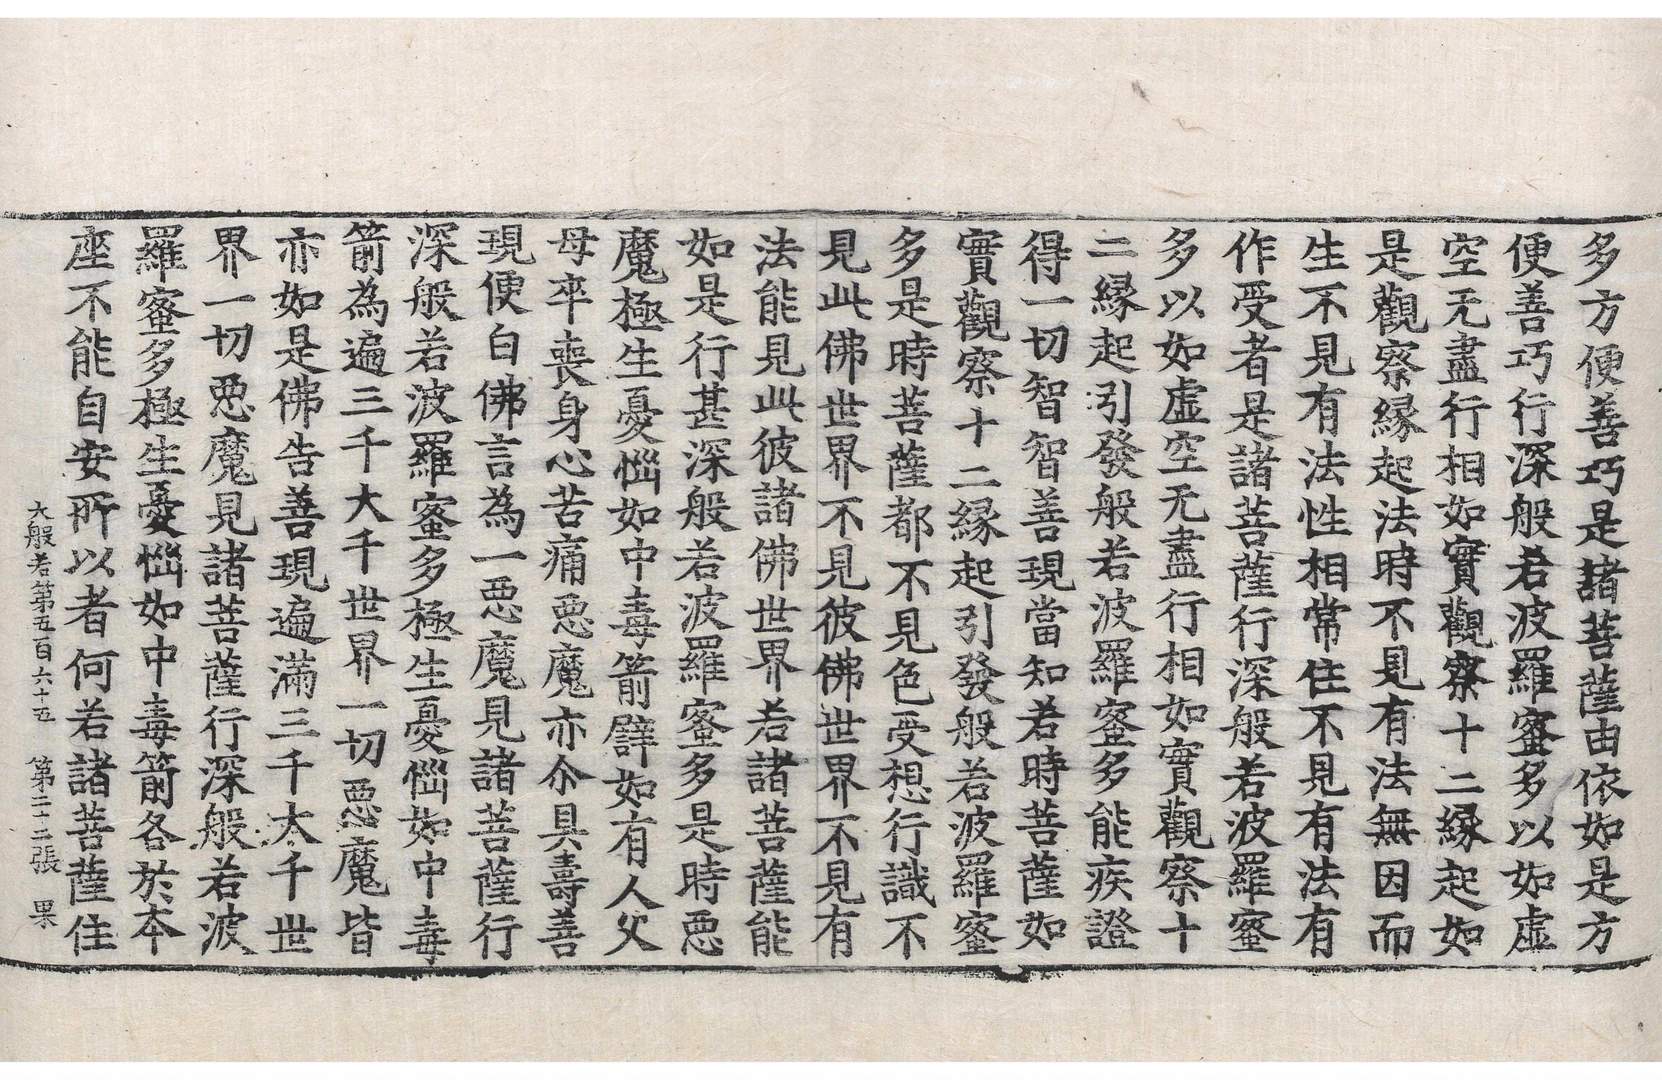 多方便善巧是諸菩薩由依如是方
便善巧行深般若波羅蜜多以如虛
空无盡行相如實觀察十二緣起如
是觀察緣起法時不見有法無因而
生不見有法性相常住不見有法有
作受者是諸菩薩行深般若波羅蜜
多以如虛空无盡行相如實觀察十
二緣起引發般若波羅蜜多能疾證
得一切智智善現當知若時菩薩如
實觀察十二緣起引發般若波羅蜜
多是時菩薩都不見色受想行識不
見此佛世界不見彼佛世界不見有
法能見此彼諸佛世界若諸菩薩能
如是行甚深般若波羅蜜多是時惡
魔極生憂惱如中毒箭譬如有人父
母卒喪身心苦痛惡魔亦尒具壽善
現便白佛言為一惡魔見諸菩薩行
深般若波羅蜜多極生憂惱如中毒
箭為遍三千大千世界一切惡魔皆
亦如是佛告善現遍滿三千大千世
界一切惡魔見諸菩薩行深般若波
羅蜜多極生憂惱如中毒箭各於本
座不能自安所以者何若諸菩薩住
大般若第五百六十五 第二十二張 果